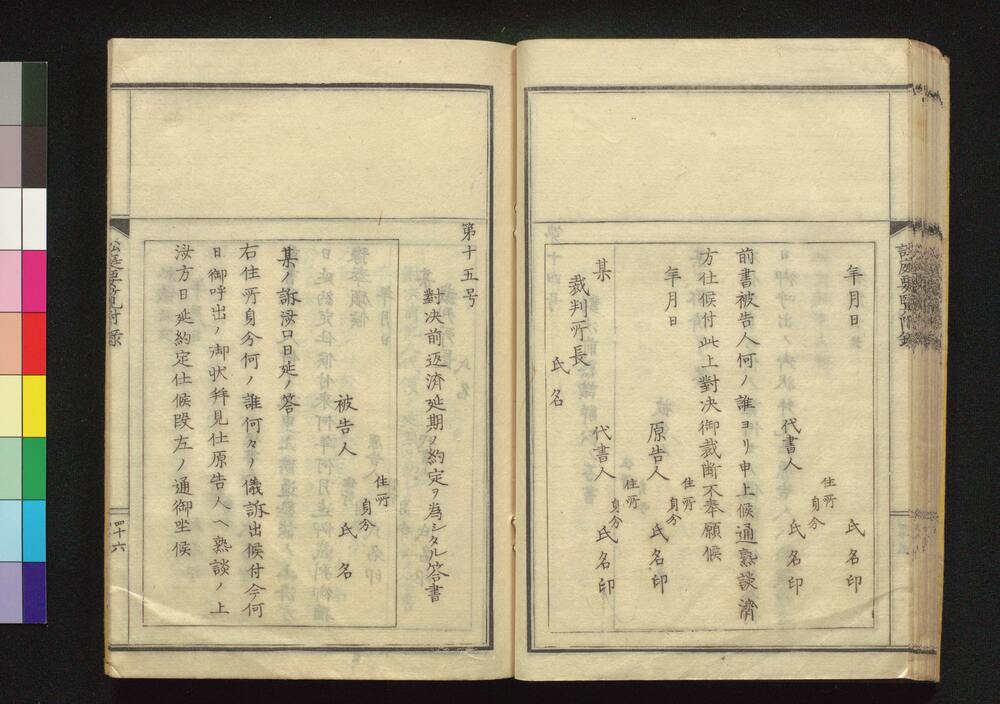 年月日
氏名印
代書人
住所
身分
氏名印
前書被告人何ノ誰ヨリ申上候通熟談濟
方仕候付此上對决御裁断不奉願候
年月日
原告人
住所
身分
氏名印
代書人
住所
身分
氏名印
某
裁判所長
氏名
第十五号
對决前返濟延期ノ約定ヲ為シタル答書
住所
身分
被告人
氏名
某ノ訴滊口日延ノ答
右住所身分何ノ誰何々ノ儀訴出候付今何
日御呼出ノ御状拜見仕原告人ヘ熟談ノ上
濟方日延約定仕候段左ノ通御坐候
四十六